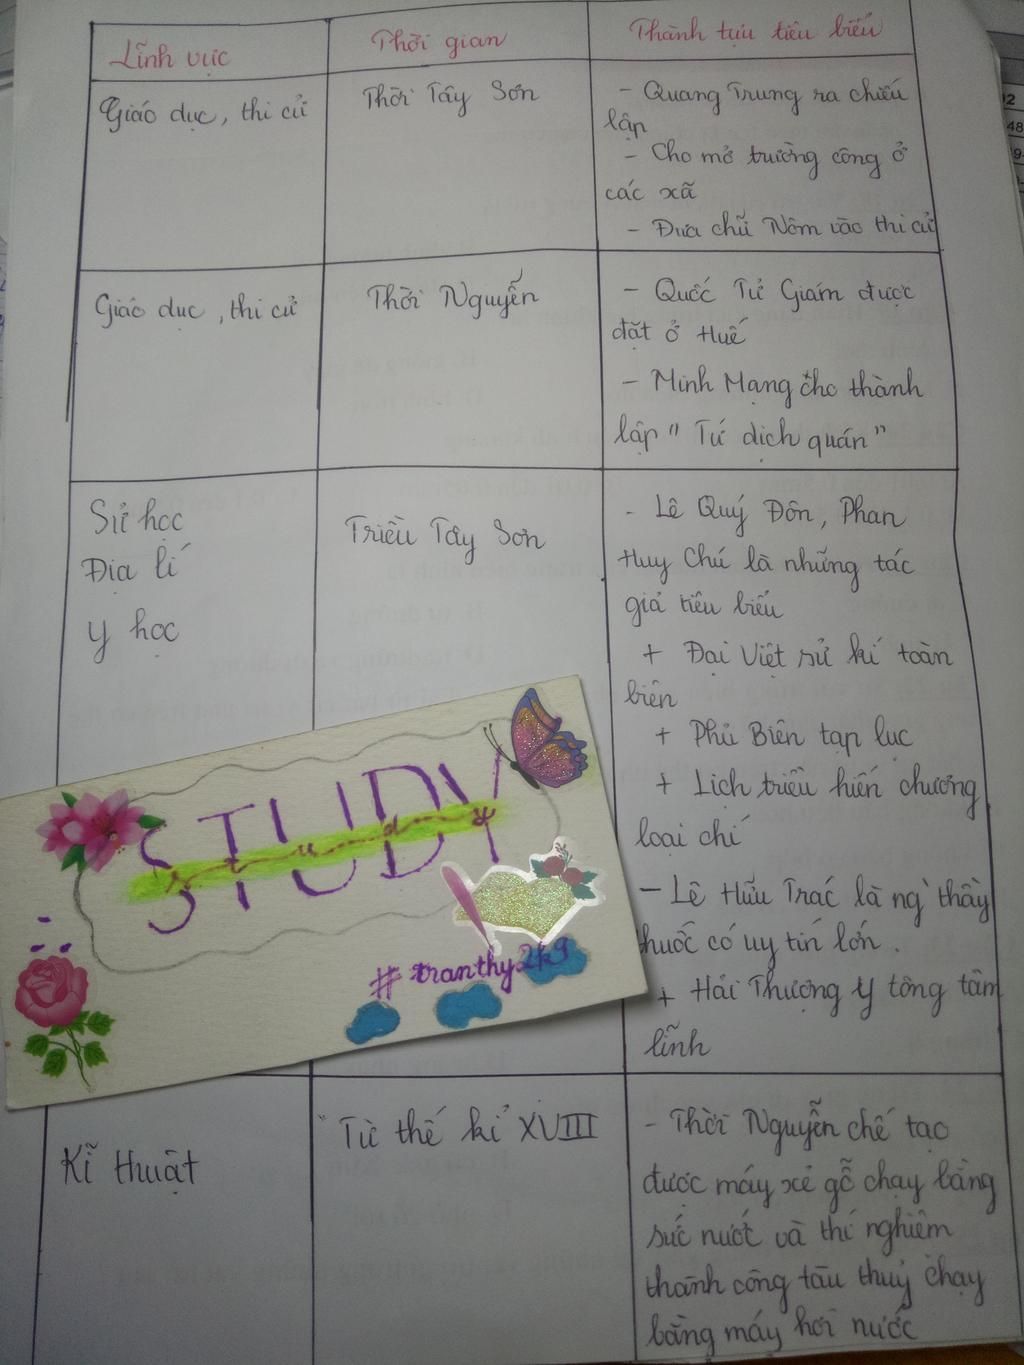 Lĩnh vực
Thời gian
Thành tựu tiêu biểu
Giáo dục, thi cử
Thời Tây Sơn
- Quang Trung ra chiếu
lập
- Cho mở trường công ở
các xã
- Đưa chữ Nôm vào thi cử
Giáo dục, thi cử
Thời Nguyễn
- Quốc Tử Giám được
đặt ở Huế
- Minh Mạng cho thành
lập " Tứ dịch quán "
Sử học
Địa lí
Y học
Triều Tây Sơn
- Lê Quý Đôn, Phan
Huy Chú là những tác
giả tiêu biểu
+ Đại Việt sử kí toàn
biên
+ Phủ Biên tạp lục
+ Lịch triều hiến chương
loại chí
- Lê Hữu Trác là ng` thầy
thuốc có uy tín lớn.
+ Hải Thượng y tông tâm
lĩnh
STUDY
study
#tranthy2k9
Kĩ thuật
Từ thế kỉ XVIII
- Thời Nguyễn chế tạo
được máy xẻ gỗ chạy bằng
sức nước và thí nghiệm
thành công tàu thuỷ chạy
bằng máy hơi nước